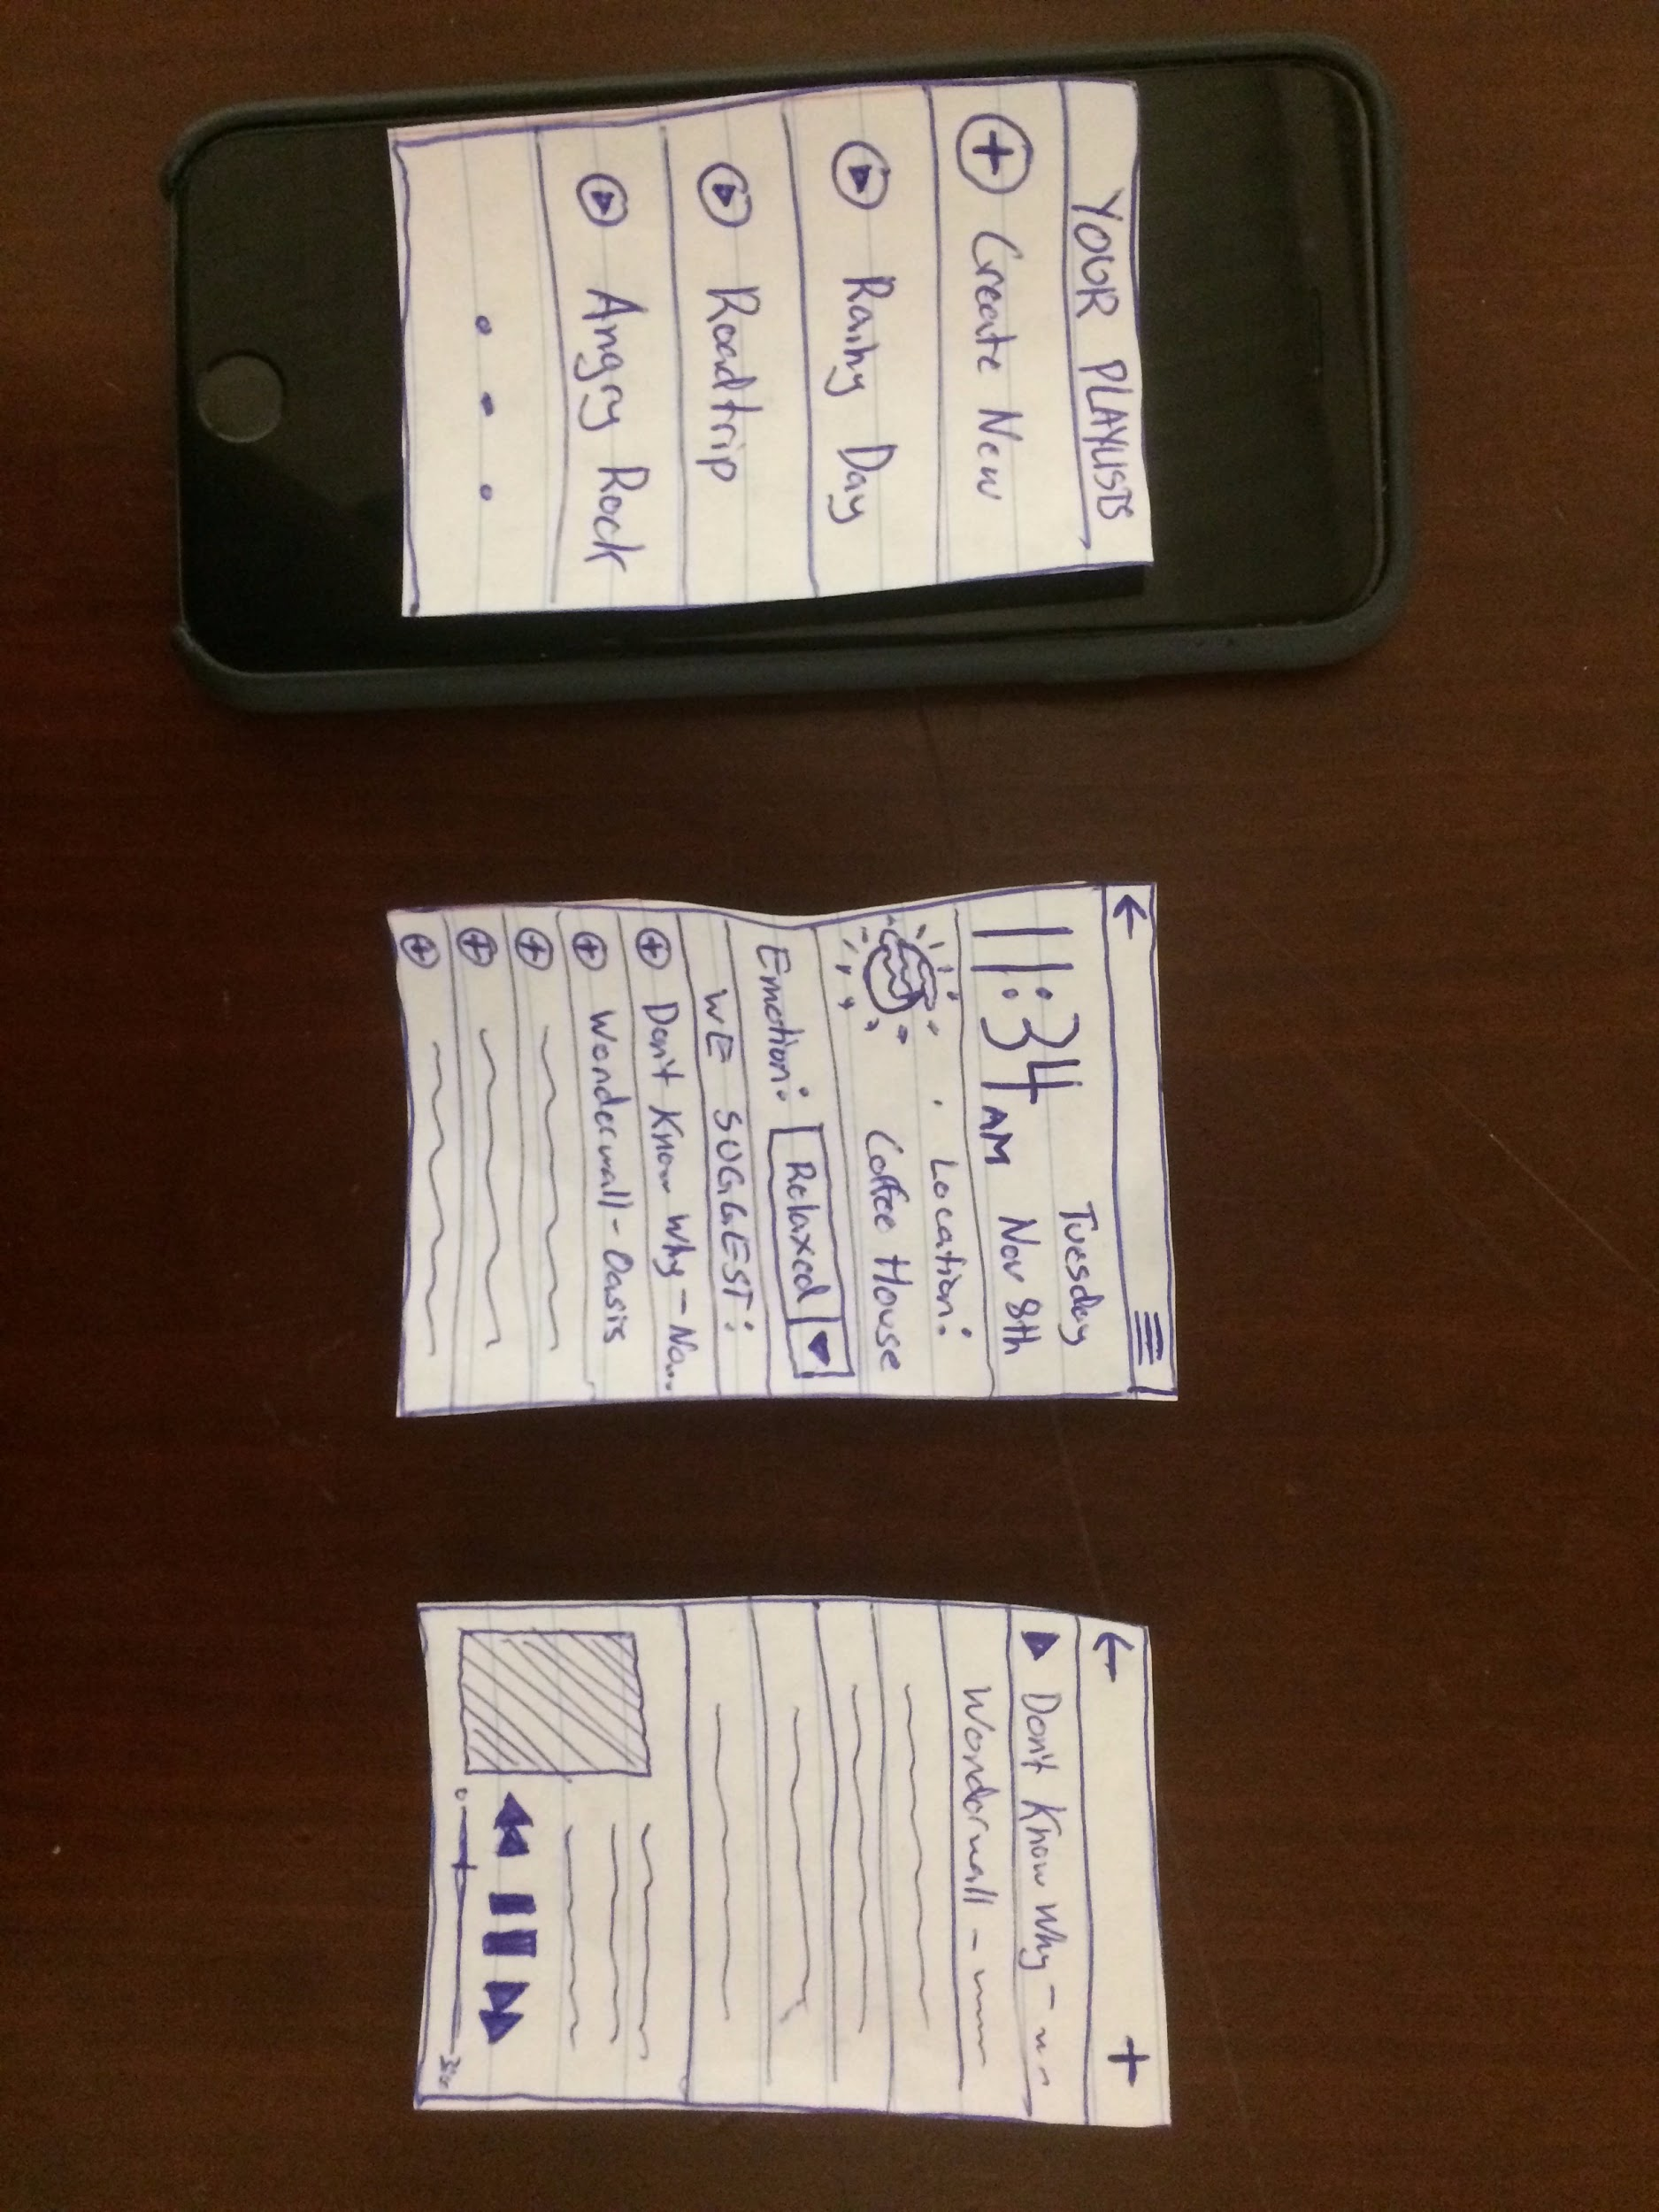 YOUR PLAYLISTS
Create New
Rainy Day
Roadtrip
Angry Rock
Tuesday
11:34 AM Nov 8th
Location:
Coffee House
Emotion: Relaxed
WE SUGGEST:
Don't Know Why - No...
Wonderwall - Oasis
Don't Know Why -
Wonderwall -